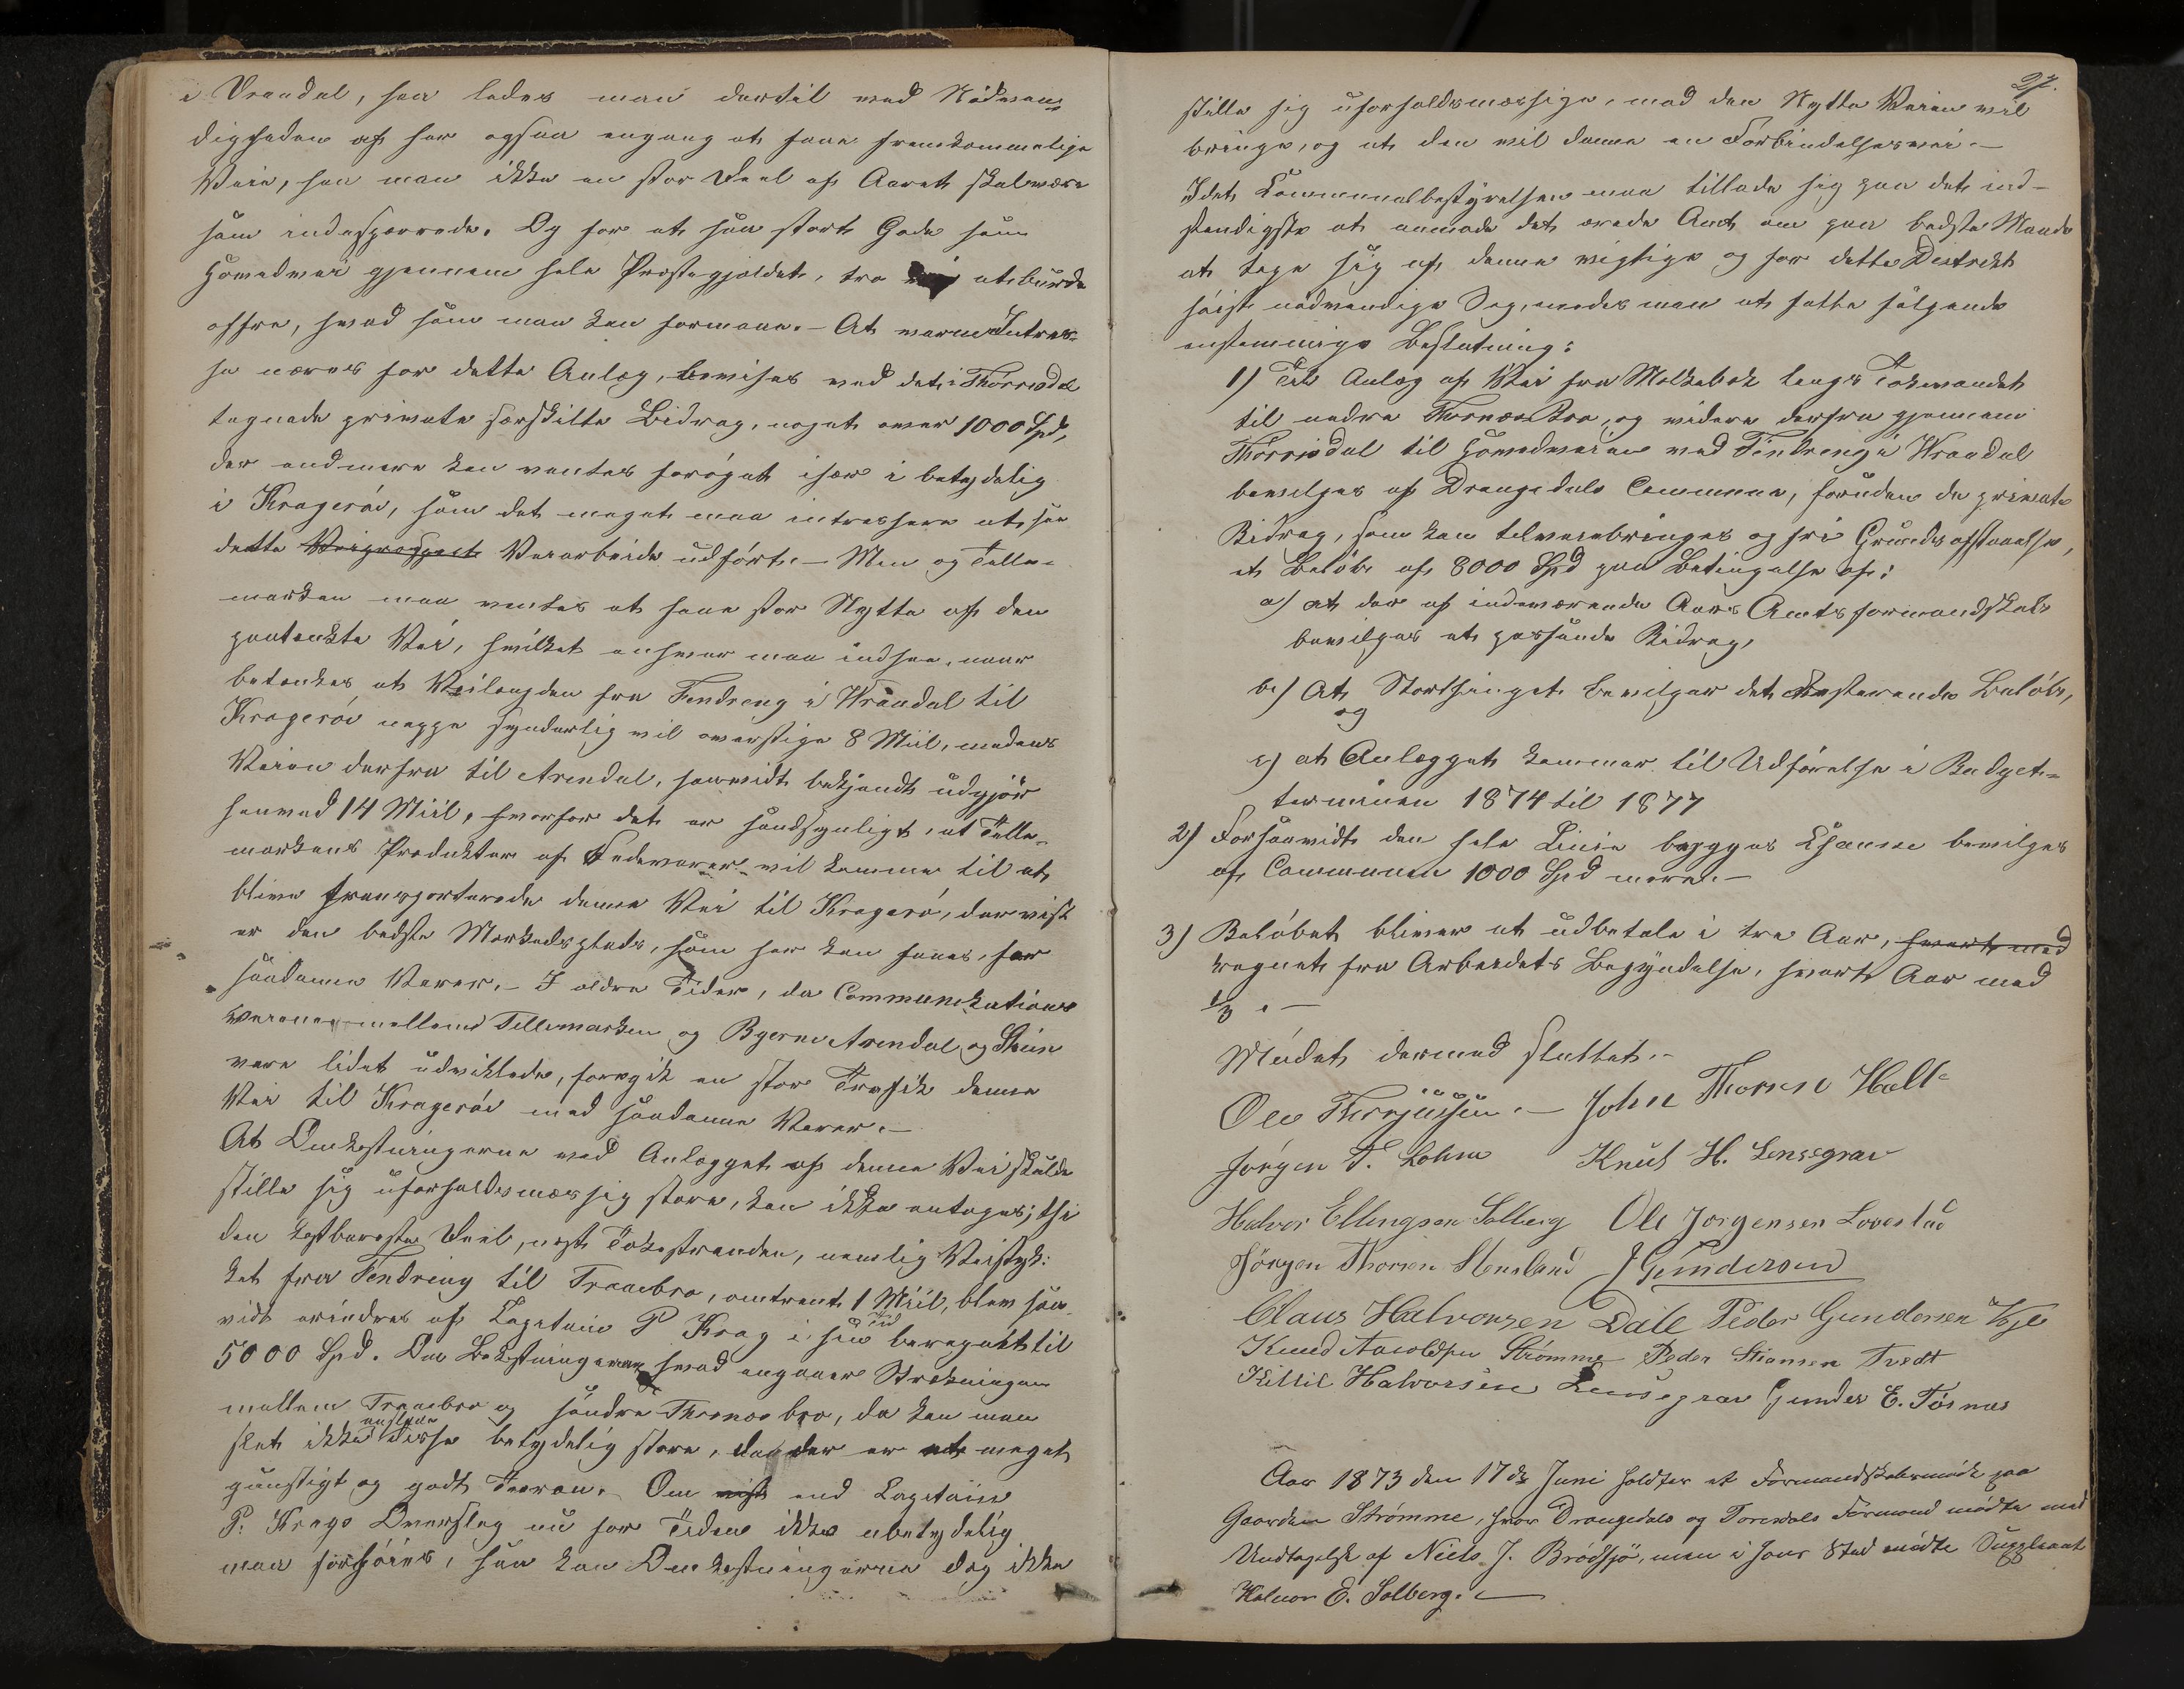 i Vraadal, saa ledes man dertil ved Nödven-
digheden af her ogsaa engang at faae fremkommelige
Veie, saa man ikke en stor Deel af Aaret skal være
som indespærrede. Og for at saa stort Gode som
Hovedvei gjennem hele Præstegjeldet, tro vi at burde
offre, hvad som man kan formaae. – At varm Intres-
se næres for dette Anlæg, bevises ved det i Thörrisdal
tegnede private særskilte Bidrag, noget over 1000 Spd,
der endmere kan ventes forøget især i betydelig
i Kragerøe, som det meget maa intressere at faa
dette Veiprospect Veiarbeide udført. – Men og Telle-
marken maa ventes at have stor Nytte af den
paatænkte Vei, hvilket enhver maa indsee, naar
betænkes at Veilængden fra Fendreng i Vraadal til
Kragerøe neppe synderlig vil overstige 8 Miil, medens
Veien derfra til Arendal, saavidt bekjendt udgjør
henved 14 Miil, hvorfor det er sandsynligt, at Telle-
markens Produkter af Fedevarer vil komme til at
blive transporterede denne Vei til Kragerø, der vist
er den bedste Markedsplads, som her kan faaes, for
saadanne Varer. – I ældre Tider, da Communikations
veiene mellem Tellemarken og Byerne Arendal og Skien
vare lidet udviklede, foregik en stor Trafik denne
Vei til Kragerøe med saadanne Varer. –
At Omkostningerne ved Anlægget af denne Vei skulde
stille sig uforholdsmæssig store, kan ikke antages; thi
den kostbareste Deel, næst Tokestranden, nemlig Veistyk:
ket fra Fendreng til Tranebro, omtrent 1 Miil, blev saa-
vidt erindres af Capitain P Krag i sin Tid beregnet til
5000 Spd. Om Bekostningerne hvad angaaer Strækningen
mellem Tranebro og søndre Thornes bro, da kan man
slet ikke anslaae disse betydelig store, da der er et meget
gunstigt og godt Terræn. Om end Capitain
P. Krags Overslag nu for Tiden ikke ubetydelig
maa forhøies, saa kan Omkostningerne dog ikke
27.
stille sig uforholdsmæssige, mod den Nytte Veien vil
bringe, og at den vil danne en Forbindelsesvei. –
Idet Communalbestyrelsen maa tillade sig paa det ind-
stændigste at anmode det ærede Amt om paa bedste Maade
at tage sig af denne vigtige og for dette Distrikt
høist nødvendige Sag, enedes man at fatte følgende
enstemmige Beslutning:
1) Til Anlæg af Vei fra Molkebek langs Tokevandet
til nedre Thornæs Bro, og videre derfra gjennem
Thörrisdal til Hovedveien ved Findreng i Vraadal
bevilges af Drangedals Commune, foruden de private
Bidrag, som kan tilveiebringes og fri Grunds afstaaelse,
et Beløb af 8000 Spd paa Betingelse af:
a) at der af indeværende Aars Amtsformandskab
bevilges et passende Bidrag,
b) At Storthinget bevilger det resterende Beløb,
og
c) at Anlægget kommer til Udførelse i Budget-
terminen 1874 til 1877
2) Forsaavidt den hele Linie bygges Chaussee bevilges
af Communen 1000 Spd mere. –
3) Beløbet bliver at udbetale i tre Aar, hvert med
regnet fra Arbeidets Begyndelse, hvert Aar med
1/3. –
Mødet dermed sluttet. –
Ole Therjussen. – John Thorsen Holte
Jörgen T. Lohne Knut H. Lensegrav
Halvor Ellingsen Solberg Ole Jorgensen Lovestad
Jörgen Thorsen Henseland J Gundersen
Claus Halvorsen Dale Peder Gundersen Voje
Knud Aavoldsen Strømme Peder Stiansen Tvedt
Kittil Halvorsen Lensegrav Gunder E. Tørnes
Aar 1873 den 17de Juni holdtes et Formandskabsmøde paa
Gaarden Strømme, hvor Drangedals og Tørdals Formænd mødte med
Undtagelse af Niels J. Brødsjø, men i hans Sted mødte Suppleant
Halvor E. Solberg. –